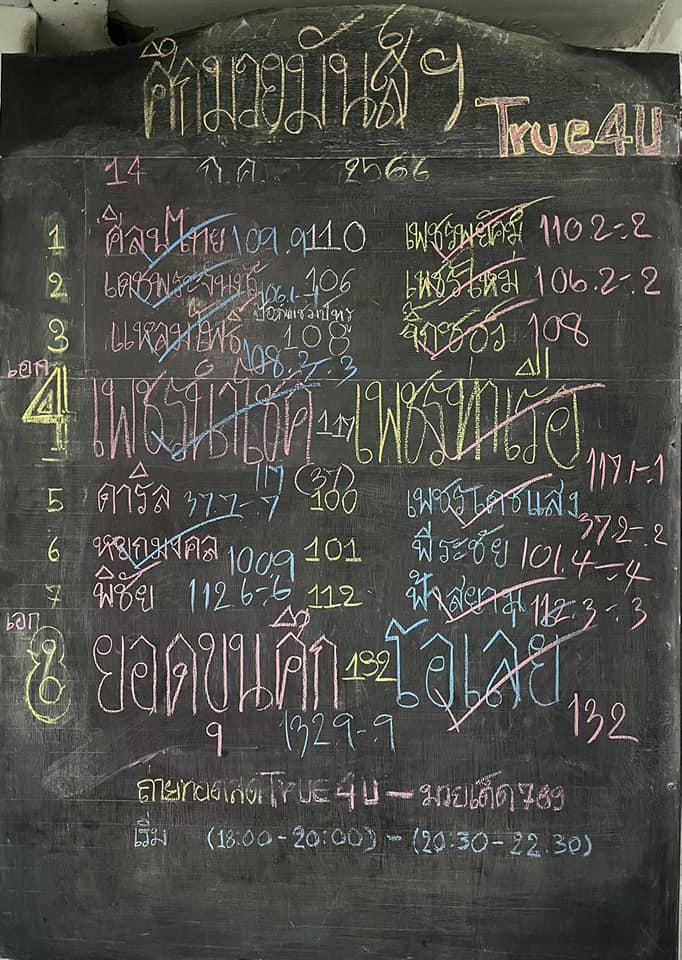 ศึกมวยมันส์ฯ True4U
14 ก.ค. 2566
1 ศิลป์ไทย 109.9 110 เพชรพยัคฆ์ 110.2-.2
2 เดชพระจันทร์ 106.1-.1 106 เพชรใหม่ 106.2-.2
3 แหลมโพธิ์ 108.3-.3 108 108
เอก
4 เพชรนำโชค 117 117 เพชรท่าเรือ 117.1-.1
5 ดาริล 37.7-.7 (37) 100 เพชรเดชแสง 37.2-.2
6 หยกมงคล 100.9 101 พีระชัย 101.4-.4
7 พิชัย 112.6-.6 112 ฟ้าสยาม 112.3-.3
เอก
8 ยอดขุนศึก 132 โอเลย์
9 132.9-.9 132
ถ่ายทอดสด TRUE4U - มวยเด็ด789
เริ่ม (18:00-20:00) - (20:30-22.30)